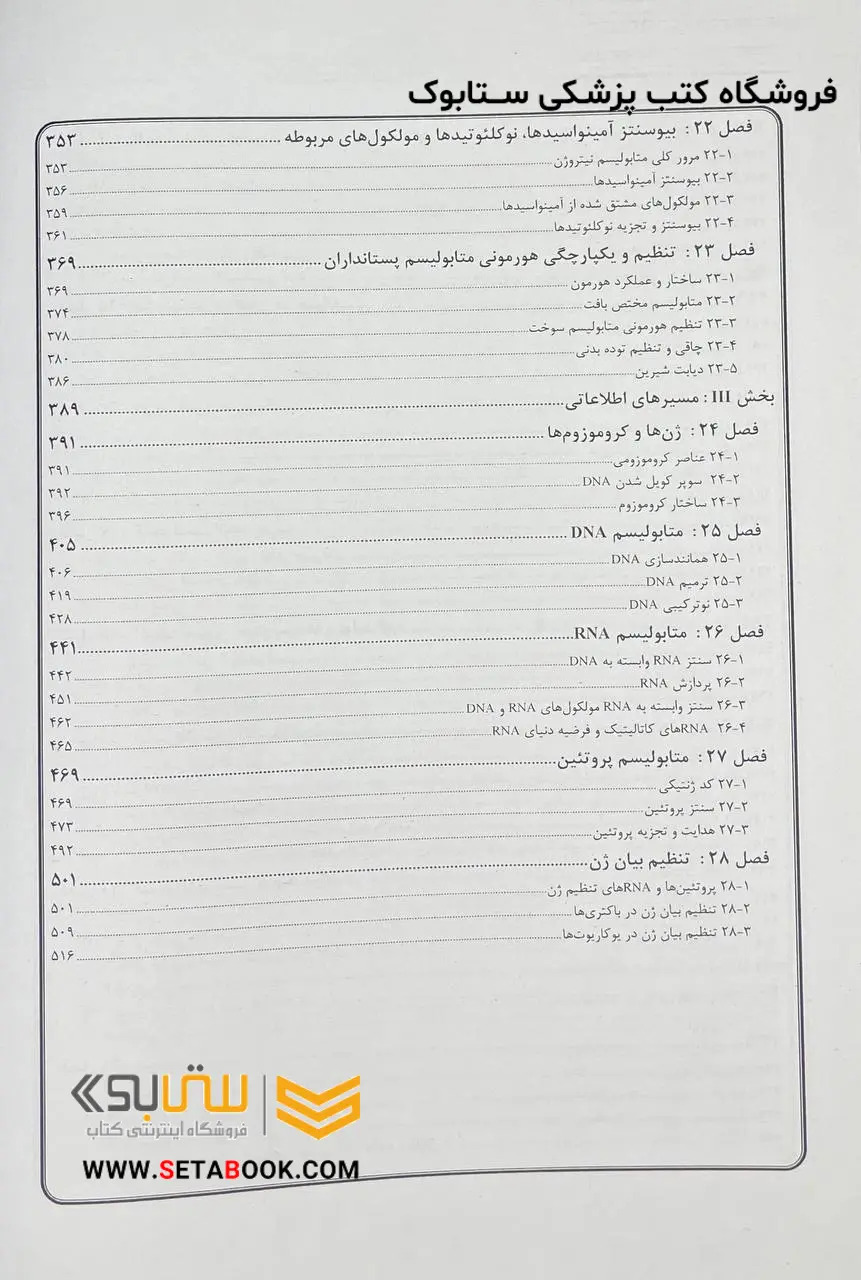 فروشگاه کتب پزشکی ستابوک
فصل ۲۲: بیوسنتز آمینواسیدها، نوکلئوتیدها و مولکول‌های مربوطه ........ ۳۵۳
۲۲-۱ مرور کلی متابولیسم نیتروژن ........ ۳۵۳
۲۲-۲ بیوسنتز آمینواسیدها ........ ۳۵۶
۲۲-۳ مولکول‌های مشتق شده از آمینواسیدها ........ ۳۵۹
۲۲-۴ بیوسنتز و تجزیه نوکلئوتیدها ........ ۳۶۱
فصل ۲۳: تنظیم و یکپارچگی هورمونی متابولیسم پستانداران ........ ۳۶۹
۲۳-۱ ساختار و عملکرد هورمون ........ ۳۶۹
۲۳-۲ متابولیسم مختص بافت ........ ۳۷۴
۲۳-۳ تنظیم هورمونی متابولیسم سوخت ........ ۳۷۸
۲۳-۴ چاقی و تنظیم توده بدنی ........ ۳۸۰
۲۳-۵ دیابت شیرین ........ ۳۸۶
بخش III: مسیرهای اطلاعاتی ........ ۳۸۹
فصل ۲۴: ژن‌ها و کروموزوم‌ها ........ ۳۹۱
۲۴-۱ عناصر کروموزومی ........ ۳۹۱
۲۴-۲ سوپر کویل شدن DNA ........ ۳۹۲
۲۴-۳ ساختار کروموزوم ........ ۳۹۶
فصل ۲۵: متابولیسم DNA ........ ۴۰۵
۲۵-۱ همانندسازی DNA ........ ۴۰۶
۲۵-۲ ترمیم DNA ........ ۴۱۹
۲۵-۳ نوترکیبی DNA ........ ۴۲۸
فصل ۲۶: متابولیسم RNA ........ ۴۴۱
۲۶-۱ سنتز RNA وابسته به DNA ........ ۴۴۲
۲۶-۲ پردازش RNA ........ ۴۵۱
۲۶-۳ سنتز وابسته به RNA مولکول‌های RNA و DNA ........ ۴۶۲
۲۶-۴ RNAهای کاتالیتیک و فرضیه دنیای RNA ........ ۴۶۵
فصل ۲۷: متابولیسم پروتئین ........ ۴۶۹
۲۷-۱ کد ژنتیکی ........ ۴۶۹
۲۷-۲ سنتز پروتئین ........ ۴۷۳
۲۷-۳ هدایت و تجزیه پروتئین ........ ۴۹۲
فصل ۲۸: تنظیم بیان ژن ........ ۵۰۱
۲۸-۱ پروتئین‌ها و RNAهای تنظیم ژن ........ ۵۰۱
۲۸-۲ تنظیم بیان ژن در باکتری‌ها ........ ۵۰۹
۲۸-۳ تنظیم بیان ژن در یوکاریوت‌ها ........ ۵۱۶
ستابوک
فروشگاه اینترنتی کتاب
WWW.SETABOOK.COM